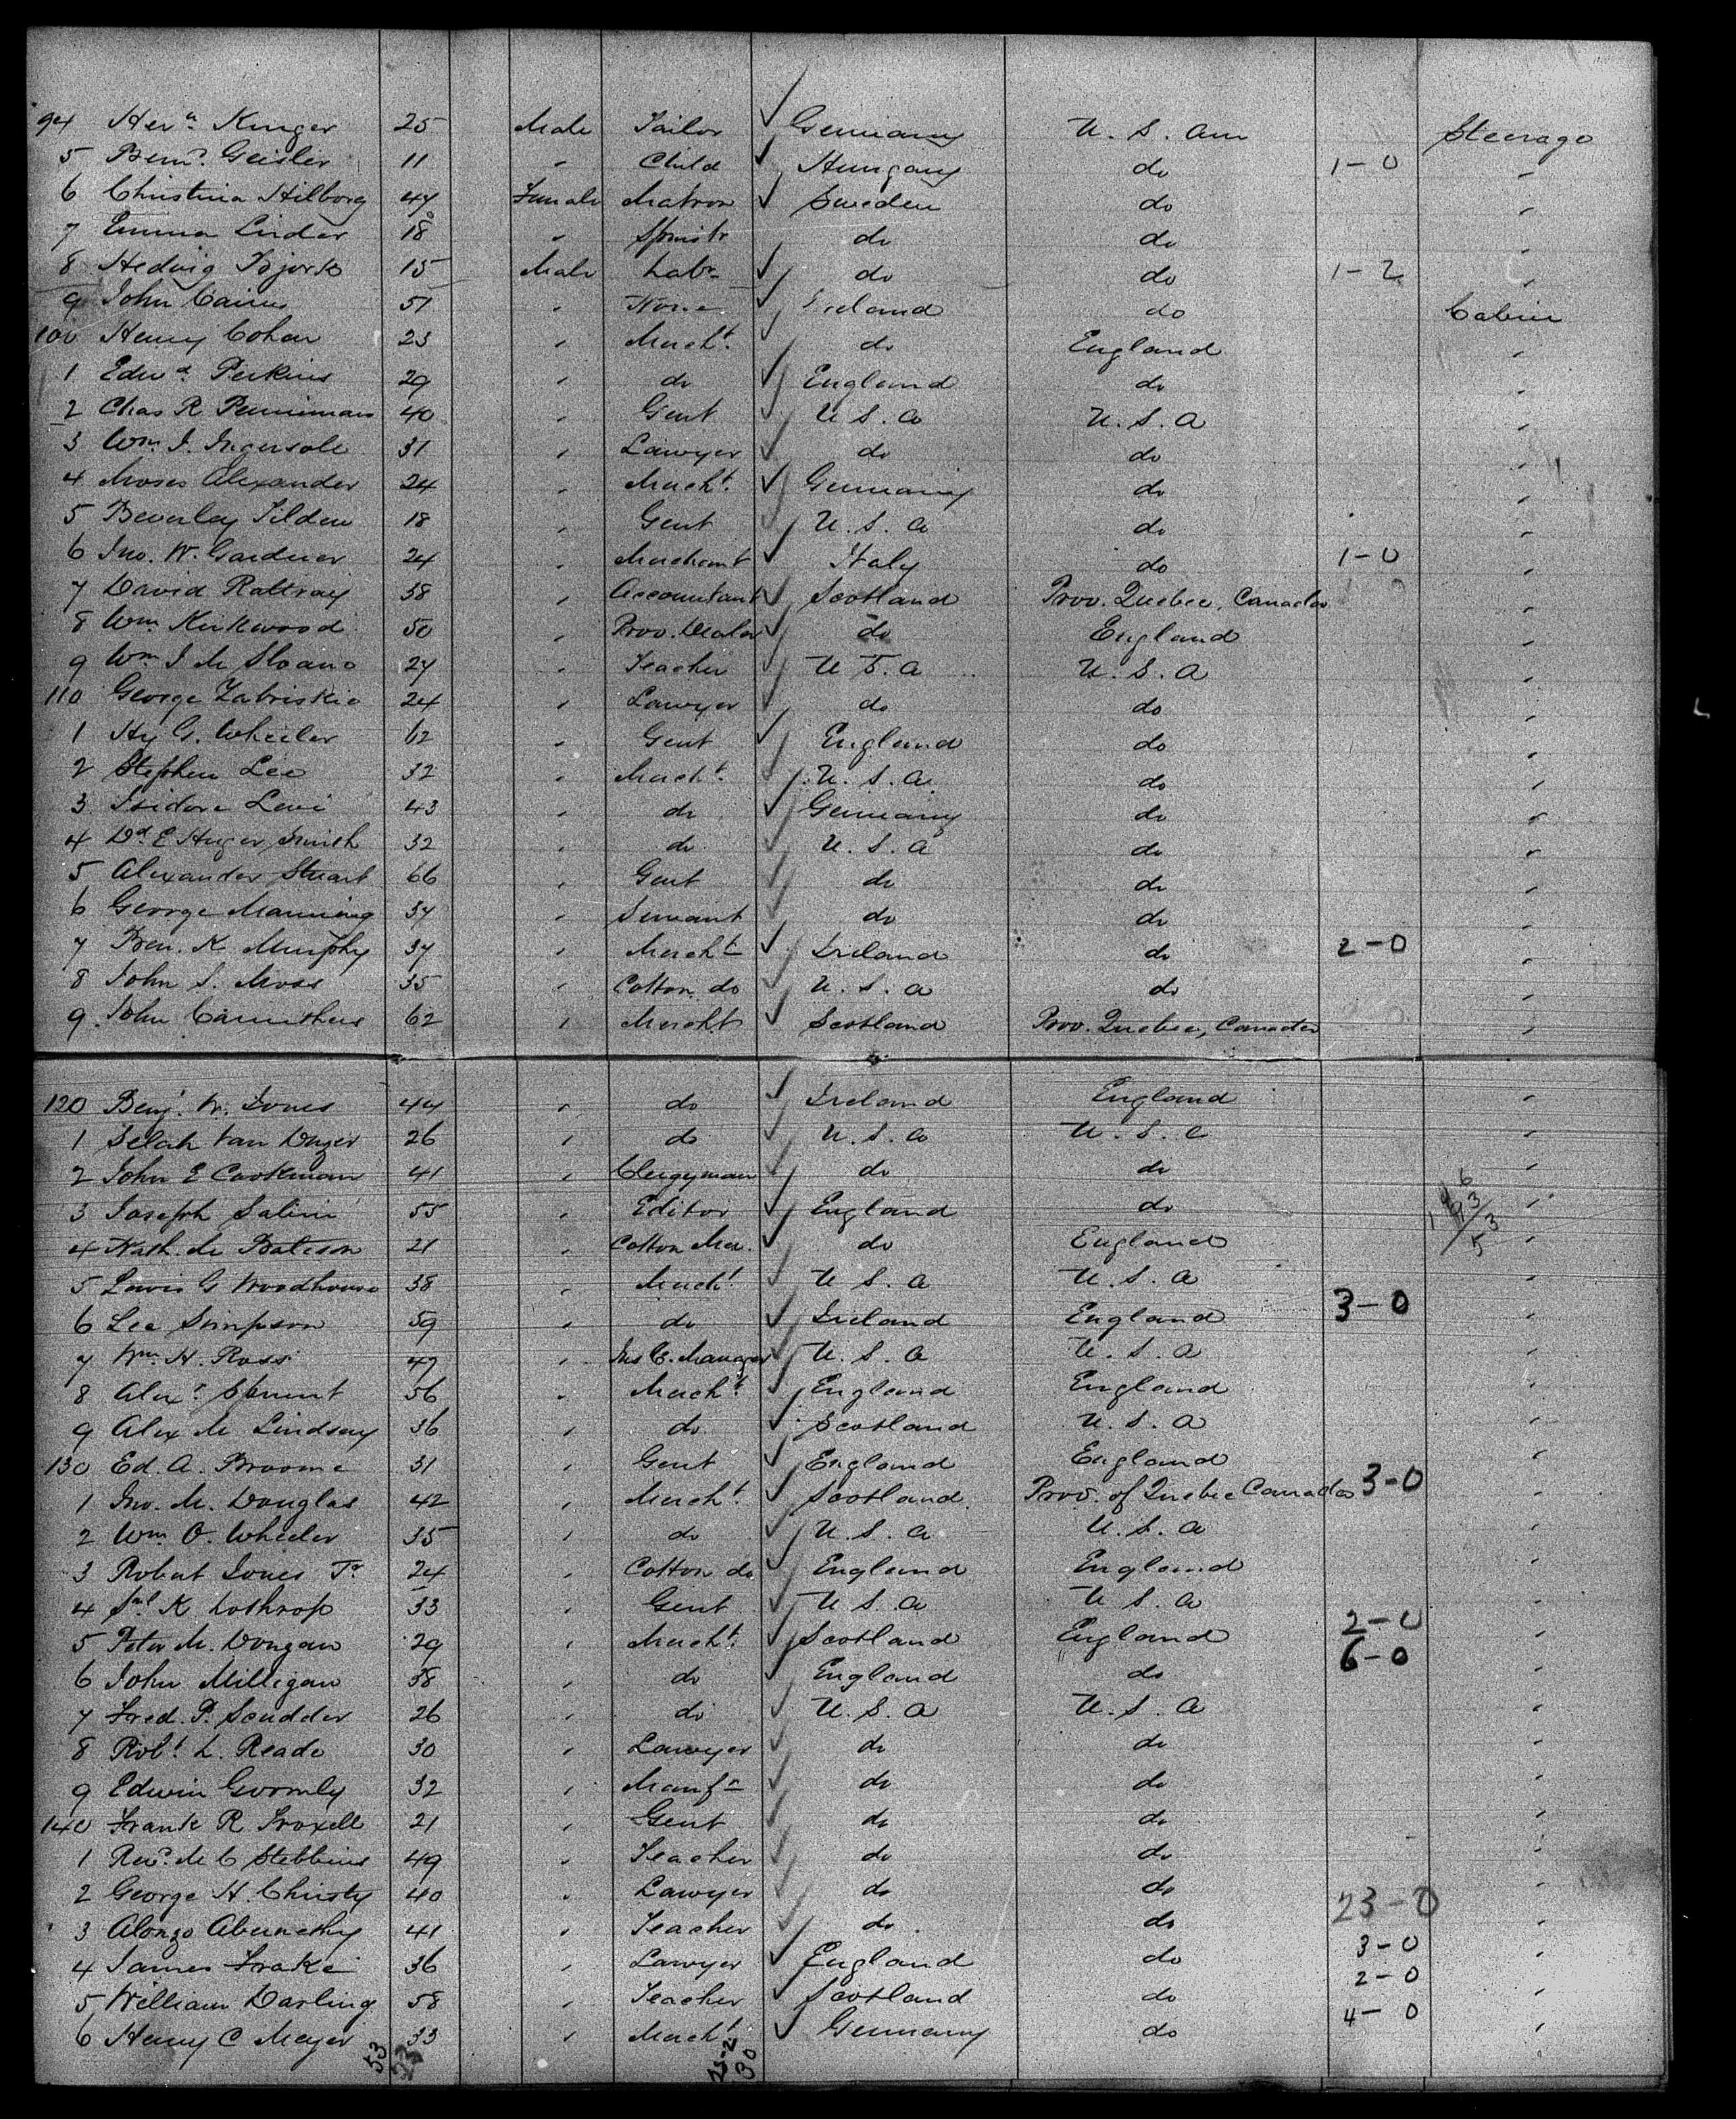 94 Herⁿ Kruger 25 Male Tailor ✓ Germany U. S. Am Steerage
5 Bernᵈ. Geisler 11 " Child ✓ Hungary do 1-0 "
6 Christina Hilborg 47 Female Matron ✓ Sweden do "
7 Emma Linder 18 " Spinstr do do "
8 Hedwig Bjork 15 Male Labr ✓ do do 1-2 "
9 John Cairns 51 " None ✓ Ireland do Cabin
100 Henry Cohen 23 " Mercht. ✓ do England "
1 Edwd Perkins 29 " do ✓ England do "
2 Chas R Penniman 40 " Gent ✓ U S. a U. S. a "
3 Wm. J. Ingersole 31 " Lawyer ✓ do do "
4 Moses Alexander 24 " Mercht. ✓ Germany do "
5 Beverley Tilden 18 " Gent ✓ U. S. a do "
6 Jno. W. Gardner 24 " Merchant ✓ Italy do 1-0 "
7 David Rattray 38 " Accountant ✓ Scotland Prov. Quebec, Canada "
8 Wm. Kirkwood 50 " Prov. Dealer ✓ do England "
9 Wm J M Sloane 27 " Teacher ✓ U S. a U. S. a "
110 George Zabriskie 24 " Lawyer ✓ do do "
1 Hy G. Wheeler 62 " Gent ✓ England do "
2 Stephen Lee 32 " Mercht. ✓ U. S. a. do "
3 Isidore Levi 43 " do ✓ Germany do "
4 Dd. E Huger Smith 32 " do ✓ U. S. a do "
5 Alexander Stuart 66 " Gent ✓ do do "
6 George Manning 34 " Servant ✓ do do "
7 K Murphy 37 " Mercht ✓ Ireland do 2-0 "
8 John S. Moss 35 " Cotton do ✓ U. S. a do "
9 John Carruthers 62 " Mercht ✓ Scotland Prov. Quebec, Canada "
120 Benj. W. Jones 44 " do ✓ Ireland England "
1 Selah Van Duzer 26 " do ✓ U. S. a U. S. a "
2 John E Cookman 41 " Clergyman ✓ do do "
3 Joseph 55 " Editor ✓ England do "
4 Nath. M Bateson 21 " Cotton Mer. ✓ do England "
5 Lewis G Woodhouse 38 " Mercht ✓ U S. a U. S. a "
6 Lee Simpson 59 " do ✓ Ireland England 3-0 "
7 Wm. H. Ross 47 " Ins C. Manager ✓ U. S. a U. S. a "
8 Alexr. Sprunt 56 " Mercht. ✓ England England "
9 Alex M Lindsay 36 " do ✓ Scotland U. S. a "
130 Ed. A. Broome 31 " Gent ✓ England England "
1 Jno. M. Douglas 42 " Mercht. ✓ Scotland Prov. of Quebec Canada 3-0 "
2 Wm. O. Wheeler 35 " do ✓ U. S. a U. S. a "
3 Robert Jones Jr 24 " Cotton do ✓ England England "
4 Sml K Lothrop 33 " Gent ✓ U S. a U S. a "
5 Peter M. 29 " Mercht. ✓ Scotland England 2-0 "
6 John Milligan 38 " do ✓ England do 6-0 "
7 Fred. P. Scudder 26 " do ✓ U. S. a U. S. a "
8 Robt. L. Reade 30 " Lawyer ✓ do do "
9 Edwin Gormly 32 " Manfr ✓ do do "
140 Frank R Troxell 21 " Gent ✓ do do "
1 Revd. M C Stebbins 49 " Teacher ✓ do do "
2 George H. Christy 40 " Lawyer ✓ do do 23-0 "
3 Alonzo Abernethy 41 " Teacher ✓ do do "
4 James Frake 36 " Lawyer ✓ England do 3-0 "
5 William Darling 58 " Teacher ✓ Scotland do 2-0 "
6 Henry C Meyer 33 " Mercht. ✓ Germany do 4-0 "
53 23 30